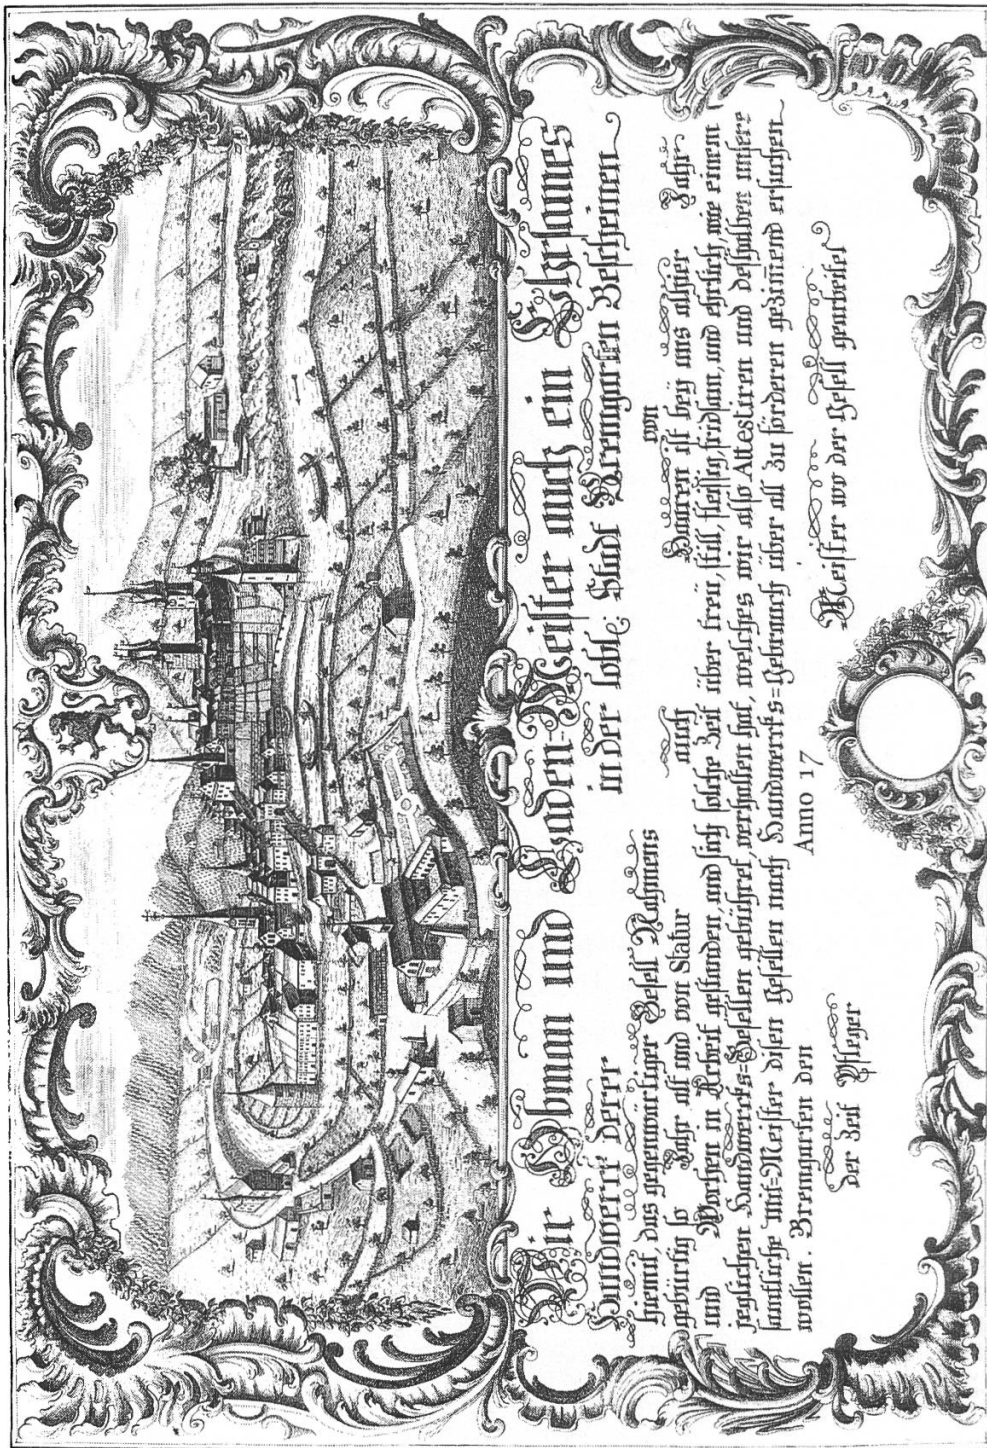 Wir Obman und Laden-Meister auch ein Ehrsames
Handwerk derer in der lobl: Stadt Bremgarten Bescheinen
hiemit, das gegenwärtiger Gesell Nahmens von
gebürtig so Jahr alt und von Statur auch Haaren ist beÿ uns alhier Jahr
und Wochen in Arbeit gestanden, und sich solche Zeit über treü, still, fleissig, fridsam, und ehrlich, wie einem
jeglichen Handwerks=Gesellen gebühret, verhalten hat, welches wir also Attestiren und deshalben unsere
samtliche mit=Meister disen Gesellen nach Handwerks=Gebrauch über all zu förderen gezim̄end ersuchen
wollen. Bremgarten den Anno 17
der Zeit Pfleger
Meister wo der Gesell gearbeitet